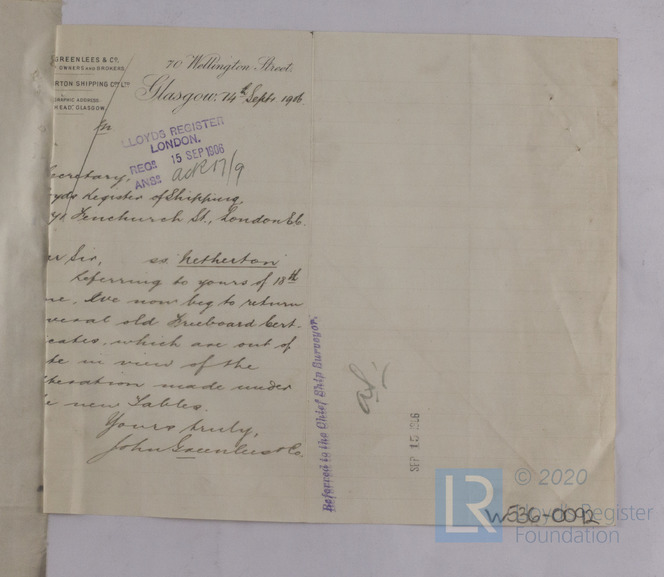 GREENLEES & Co.
OWNERS AND BROKERS.
RTON SHIPPING Coy LTD
GRAPHIC ADDRESS
HEAD, GLASGOW
70 Wellington Street,
Glasgow, 14th Sept 1906
LLOYDS REGISTER
LONDON.
RECD 15 SEP 1906
ANSD ack 17/9
ecretary,
yds Register of Shipping,
71 Fenchurch St., London E.C.
ar Sir, ss Netherton
Referring to yours of 18th
ne, we now beg to return
veral old Freeboard Cert-
cates, which are out of
te in view of the
lteration made under
e new Tables.
Yours truly,
John Greenlees & Co.
Referred to the Chief Ship Surveyor.
SEP 15 1906
LR
© 2020
Lloyd's Register
Foundation
W536-0092